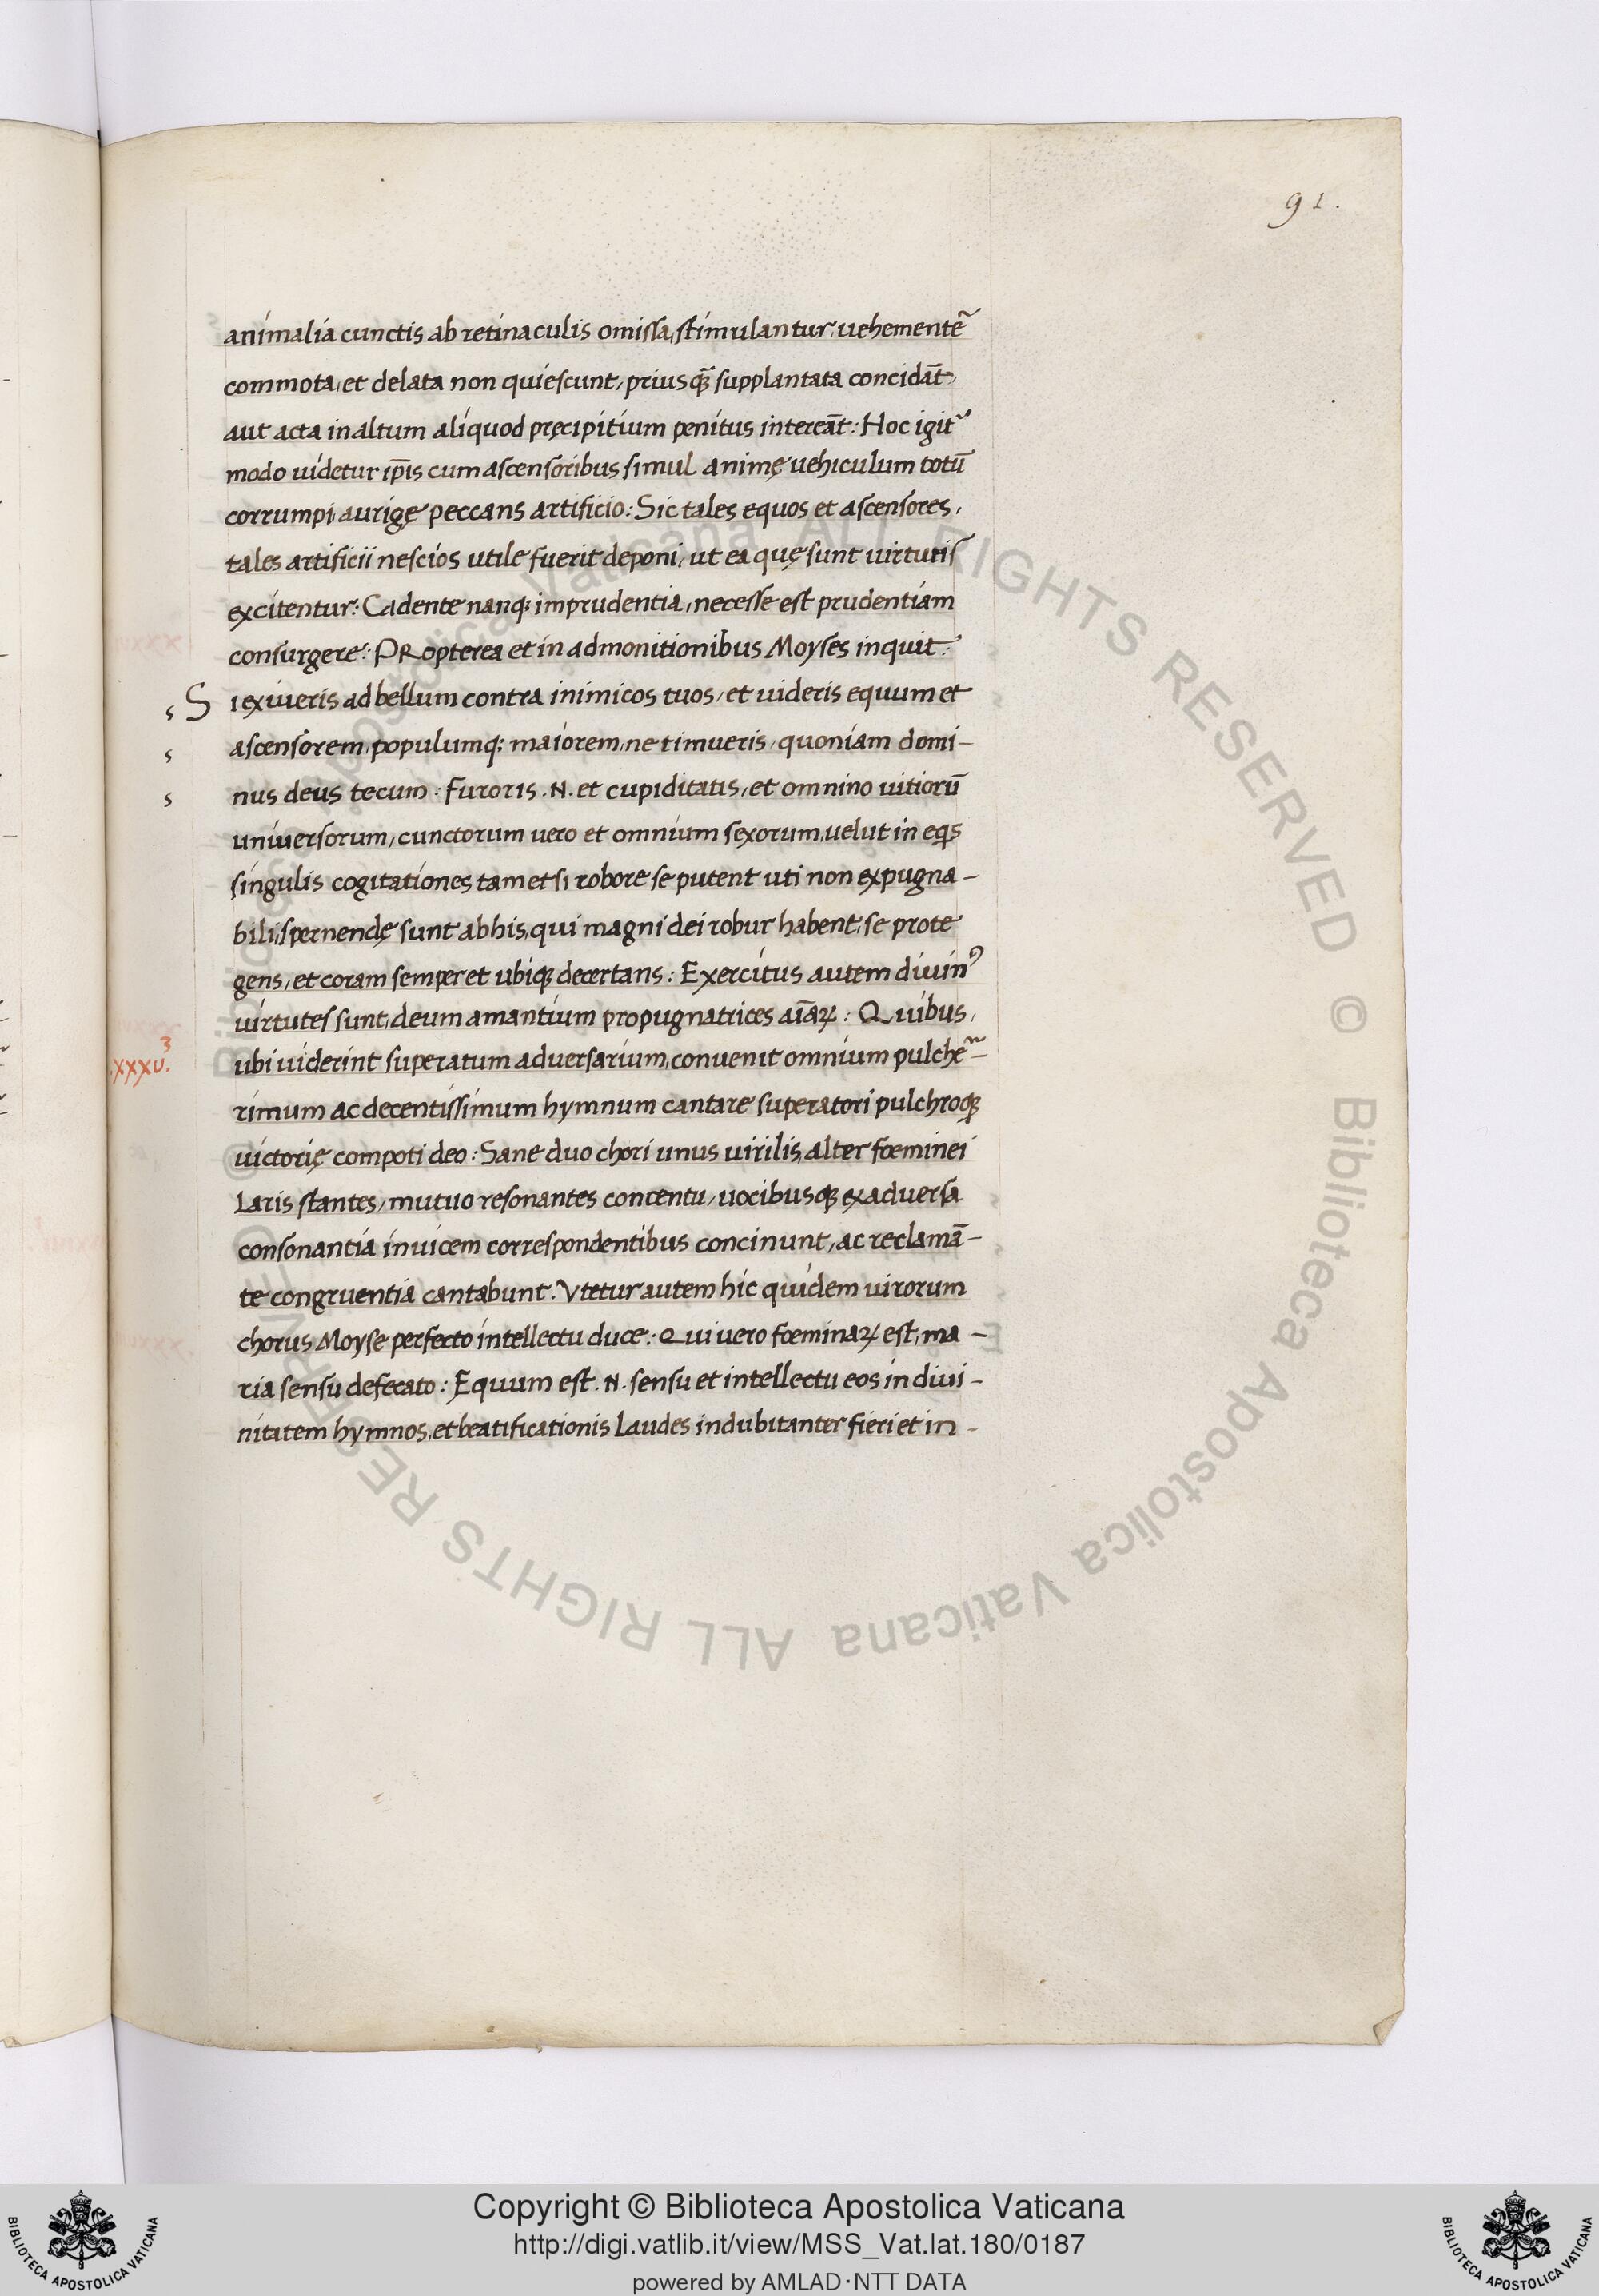 91.
animalia cunctis ab retinaculis omissa, stimulantur, uehementẽ
commota, et delata non quiescunt, priusqꝫ̃ supplantata concidãt,
aut acta in altum aliquod pręcipitium penitus intereãt: Hoc igit᷑
modo uidetur ip̄is cum ascensoribus simul animę uehiculum totũ
corrumpi, aurigę peccans artificio: Sic tales equos et ascensores,
tales artificii nescios utile fuerit deponi, ut ea quę sunt uirtutis
excitentur: Cadente nanqꝫ imprudentia, necesse est prudentiam
consurgere: PRopterea et in admonitionibus Moyses inquit:
S i exiueris ad bellum contra inimicos tuos, et uideris equum et
ascensorem, populumqꝫ maiorem, ne timueris, quoniam domi-
nus deus tecum: Furoris .N. et cupiditatis, et omnino uitiorũ
uniuersorum, cunctorum uero et omnium sexorum, uelut in eqꝭ
singulis cogitationes tametsi robore se putent uti non expugna-
bili, spernendę sunt ab his, qui magni dei robur habent, se prote
gens, et coram semper et ubiqꝫ decertans: Exercitus autem diuinꝰ
uirtutes sunt, deum amantium propugnatrices aĩaꝝ: Quibus,
.xxxv.3
ubi uiderint superatum aduersarium, conuenit omnium pulche-
rimum ac decentissimum hymnum cantare superatori pulchroqꝫ
uictorię compoti deo: Sane duo chori unus uirilis, alter fœminei
Laris stantes, mutuo resonantes concentu, uocibusqꝫ ex aduersa
consonantia inuicem correspondentibus concinunt, ac reclamã-
te congruentia cantabunt. Vtetur autem hic quidem uirorum
chorus Moyse perfecto intellectu duce: Qui uero fœminaꝝ est, ma-
ria sensu defecato: Equum est .N. sensu et intellectu eos in diui-
nitatem hymnos, et beatificationis Laudes indubitanter fieri et in-
© Biblioteca Apostolica Vaticana ALL RIGHTS RESERVED © Biblioteca Apostolica Vaticana ALL RIGHTS RESERVED
BIBLIOTECA APOSTOLICA VATICANA
Copyright © Biblioteca Apostolica Vaticana
http://digi.vatlib.it/view/MSS_Vat.lat.180/0187
powered by AMLAD·NTT DATA
BIBLIOTECA APOSTOLICA VATICANA